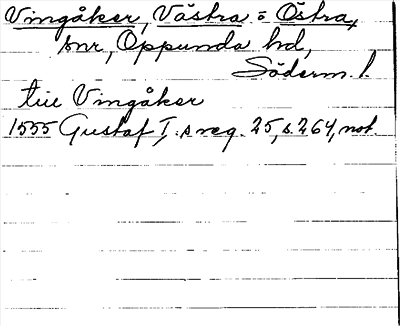 Vingåker, Västra = Östra,
snr, Oppunda hd,
Söderm. l.
tue Vingåker
1555 Gustaf I:s reg. 25, s. 264, not.